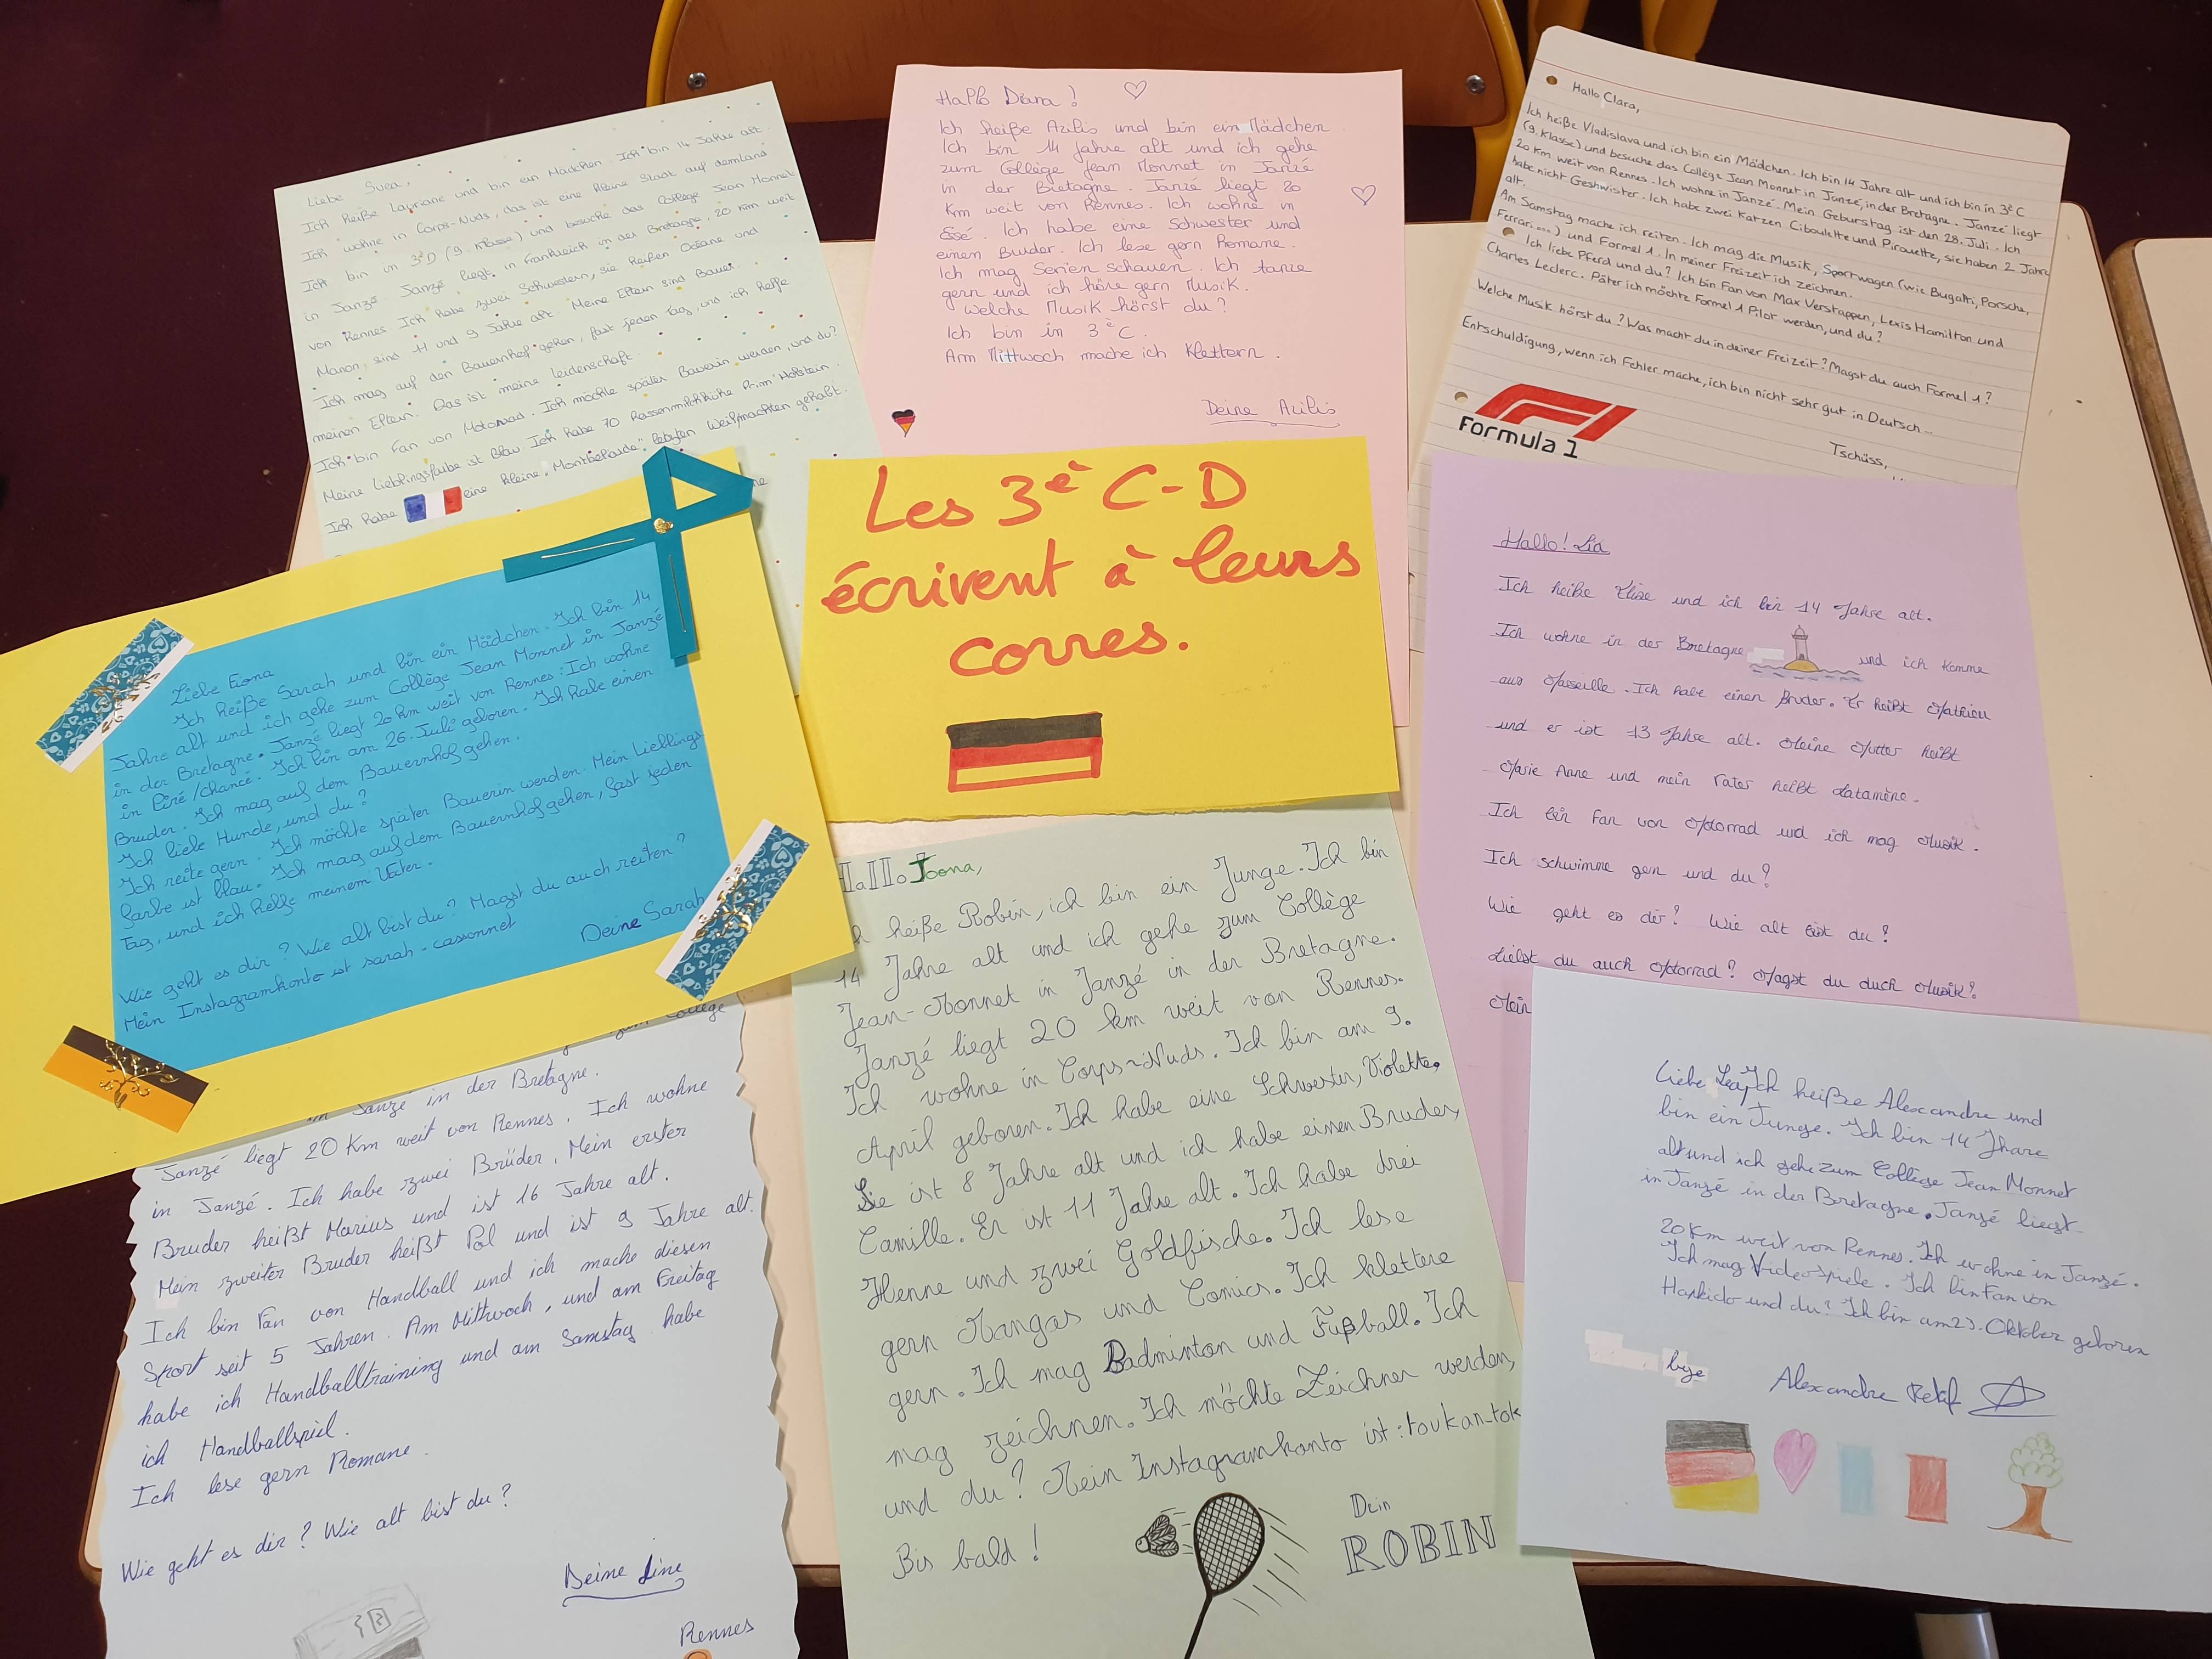 Liebe Svea,
Ich heiße Lauriane und bin ein Mädchen. Ich bin 14 Jahre alt.
Ich wohne in Corps-Nuds, das ist eine kleine Stadt auf demland
Ich bin in 3èD (9. Klasse) und besuche das Collège Jean Monnet
in Janzé. Janzé liegt in Frankreich in der Bretagne, 20 km weit
von Rennes. Ich habe zwei Schwestern, sie heißen Océane und
Manon, sind 11 und 9 Jahre alt. Meine Eltern sind Bauer.
Ich mag auf den Bauernhof gehen, fast jeden Tag, und ich helfe
meinen Eltern. Das ist meine Leidenschaft.
Ich bin Fan von Motorrad. Ich möchte später Bauerin werden, und du?
Meine Lieblingsfarbe ist Blau. Ich habe 70 Rassenmilchkühe Prim'Holstein.
Ich habe eine kleine "Montbéliarde" letzten Weihnachten gehabt.
Hallo Diana !
Ich heiße Azilis und bin ein Mädchen
Ich bin 14 Jahre alt und ich gehe
zum Collège Jean Monnet in Janzé
in der Bretagne. Janzé liegt 20
km weit von Rennes. Ich wohne in
Essé. Ich habe eine Schwester und
einen Bruder. Ich lese gern Romane.
Ich mag Serien schauen. Ich tanze
gern und ich höre gern Musik.
Welche Musik hörst du ?
Ich bin in 3èC.
Am Mittwoch mache ich Klettern.
Deine Azilis
Hallo Clara,
Ich heiße Vladislava und ich bin ein Mädchen. Ich bin 14 Jahre alt und ich bin in 3èC
(9. Klasse) und besuche das Collège Jean Monnet in Janzé, in der Bretagne. Janzé liegt
20 km weit von Rennes. Ich wohne in Janzé. Mein Geburtstag ist den 28. Juli. Ich
habe nicht Geshwister. Ich habe zwei Katzen Ciboulette und Pirouette, sie haben 2 Jahre
alt.
Am Samstag mache ich reiten. Ich mag die Musik, Sportwagen (wie Bugatti, Porsche,
Ferrari,...) und Formel 1. In meiner Freizeit ich zeichnen.
Ich liebe Pferd und du? Ich bin Fan von Max Verstappen, Lewis Hamilton und
Charles Leclerc. Päter ich möchte Formel 1 Pilot werden, und du?
Welche Musik hörst du? Was macht du in deiner Freizeit? Magst du auch Formel 1?
Entschuldigung, wenn ich Fehler mache, ich bin nicht sehr gut in Deutsch...
Tschüss,
Formula 1
Les 3è C-D
écrivent à leurs
corres.
Liebe Fiona
Ich heiße Sarah und bin ein Mädchen. Ich bin 14
Jahre alt und ich gehe zum Collège Jean Monnet in Janzé
in der Bretagne. Janzé liegt 20 km weit von Rennes. Ich wohne
in Piré/Chancé. Ich bin am 26. Juli geboren. Ich habe einen
Bruder. Ich mag auf dem Bauernhof gehen.
Ich liebe Hunde, und du ?
Ich reite gern. Ich möchte später Bauerin werden. Mein Lieblings
farbe ist blau. Ich mag auf dem Bauernhof gehen, fast jeden
Tag, und ich helfe meinem Vater.
Wie geht es dir ? Wie alt bist du ? Magst du auch reiten ?
Mein Instagramkonto ist sarah-cassonnet
Deine Sarah
Hallo! Lia
Ich heiße Elise und ich bin 14 Jahre alt.
Ich wohne in der Bretagne und ich komme
aus Marseille. Ich habe einen Bruder. Er heißt Mathieu
und er ist 13 Jahre alt. Meine Mutter heißt
Marie Anne und mein Vater heißt
Ich bin Fan von Motorrad und ich mag Musik.
Ich schwimme gern und du ?
Wie geht es dir ? Wie alt bist du ?
Liebst du auch Motorrad ? Magst du duch Musik?
Mein
zum Collège
in Janzé in der Bretagne.
Janzé liegt 20 Km weit von Rennes. Ich wohne
in Janzé. Ich habe zwei Brüder. Mein erster
Bruder heißt Marius und ist 16 Jahre alt.
Mein zweiter Bruder heißt Pol und ist 9 Jahre alt.
Ich bin Fan von Handball und ich mache diesen
Sport seit 5 Jahren. Am Mittwoch, und am Freitag
habe ich Handballtraining und am Samstag habe
ich Handballspiel.
Ich lese gern Romane.
Wie geht es dir ? Wie alt bist du ?
Deine Line
Rennes
Hallo Joona,
Ich heiße Robin, ich bin ein Junge. Ich bin
14 Jahre alt und ich gehe zum Collège
Jean-Monnet in Janzé in der Bretagne.
Janzé liegt 20 km weit von Rennes.
Ich wohne in Corps-Nuds. Ich bin am 9.
April geboren. Ich habe eine Schwester, Violette.
Sie ist 8 Jahre alt und ich habe einen Bruder,
Camille. Er ist 11 Jahre alt. Ich habe drei
Henne und zwei Goldfische. Ich lese
gern Mangas und Comics. Ich klettere
gern. Ich mag Badminton und Fußball. Ich
mag zeichnen. Ich möchte Zeichner werden,
und du? Mein Instagramkonto ist : toukan-tok
Bis bald !
Dein
ROBIN
Liebe Lea, Ich heißze Alexandre und
bin ein Junge. Ich bin 14 Jhare
alt und ich gehe zum Collège Jean Monnet
in Janzé in der Bretagne. Janzé liegt
20 Km weit von Rennes. Ich wohne in Janzé.
Ich mag Videospiele. Ich bin Fan von
Hapkido und du? Ich bin am 23. Oktober geboren
bye
Alexandre